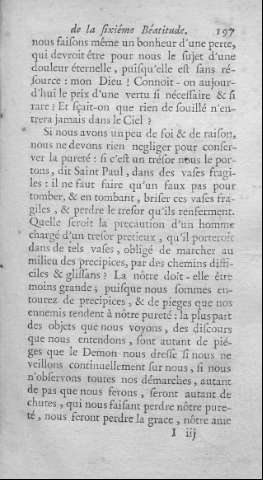 de la sixiéme Béatitude. 197
nous faisons même un bonheur d'une perte,
qui devroit être pour nous le sujet d'une
douleur éternelle, puisqu'elle est sans ré-
source : mon Dieu ! Connoît-on aujour-
d'hui le prix d'une vertu si nécessaire & si
rare ? Et sçait-on que rien de souillé n'en-
trera jamais dans le Ciel ?
Si nous avons un peu de foi & de raison,
nous ne devons rien negliger pour conser-
ver la pureté : si c'est un trésor nous le por-
tons, dit Saint Paul, dans des vases fragi-
les : il ne faut faire qu'un faux pas pour
tomber, & en tombant, briser ces vases fra-
giles, & perdre le tresor qu'ils renferment.
Quelle seroit la précaution d'un homme
chargé d'un tresor pretieux, qu'il porteroit
dans de tels vases, obligé de marcher au
milieu des precipices, par des chemins diffi-
ciles & glissans ? La nôtre doit-elle être
moins grande ; puisque nous sommes en-
tourez de precipices, & de pieges que nos
ennemis tendent à nôtre pureté : la pluspart
des objets que nous voyons, des discours
que nous entendons, sont autant de pié-
ges que le Demon nous dresse si nous ne
veillons continuellement sur nous, si nous
n'observons toutes nos démarches, autant
de pas que nous ferons, seront autant de
chutes, qui nous faisant perdre nôtre pure-
té, nous feront perdre la grace, nôtre ame
I iij